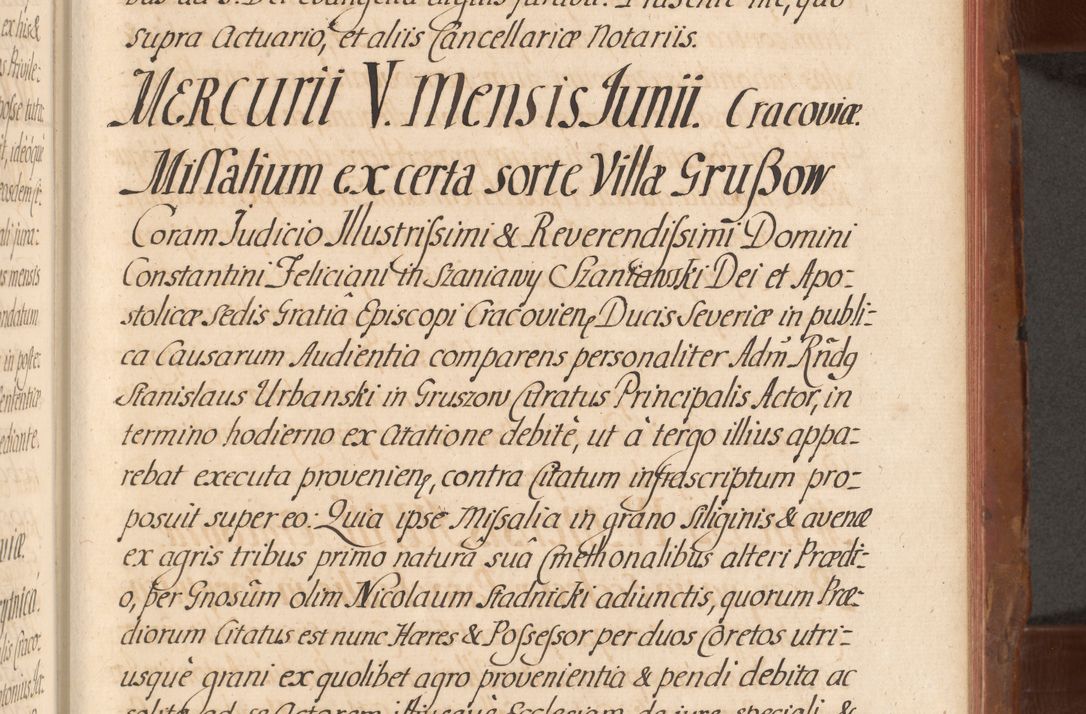 bus ad S. Dei Evangelia digitis juravit. Præsente me, quo
supra Actuario, et aliis Cancellariæ Notariis.
MERCURII V. Mensis Junii. Cracoviæ.
Missalium ex certa sorte Villæ Grußow
Coram Judicio Illustrissimi & Reverendissimi Domini
Constantini Feliciani in Szaniawy Szaniawski Dei et Apo-
stolicæ Sedis Gratiâ Episcopi Cracovien, Ducis Severiæ in publi-
ca Causarum Audientia comparens personaliter Adm̃ Rñdq
Stanislaus Urbanski in Gruszow Curatus Principalis Actor, in
termino hodierno ex Citatione debitè, ut à tergo illius appa-
rebat executa provenien, contra Citatum infrascriptum pro-
posuit super eo: Quia ipse Missalia in grano Siliginis & avenæ
ex agris tribus primo naturâ suâ Cmethonalibus alteri Prædi-
o, per Gnosûm olim Nicolaum Stadnicki adiunctis, quorum Præ-
diorum Citatus est nunc Hæres & Possessor per duos Coretos utri-
usquè grani ex quolibet agro provenientia & pendi debita ac
solita ad se Actorem illiusquè Ecclesiam de jure speciali &
ex his &
Privile-
posse tuta
ideòquè
eosdem
ali jura-
mensis
ndatum
in poste-
Sententiæ
ediante.
viæ.